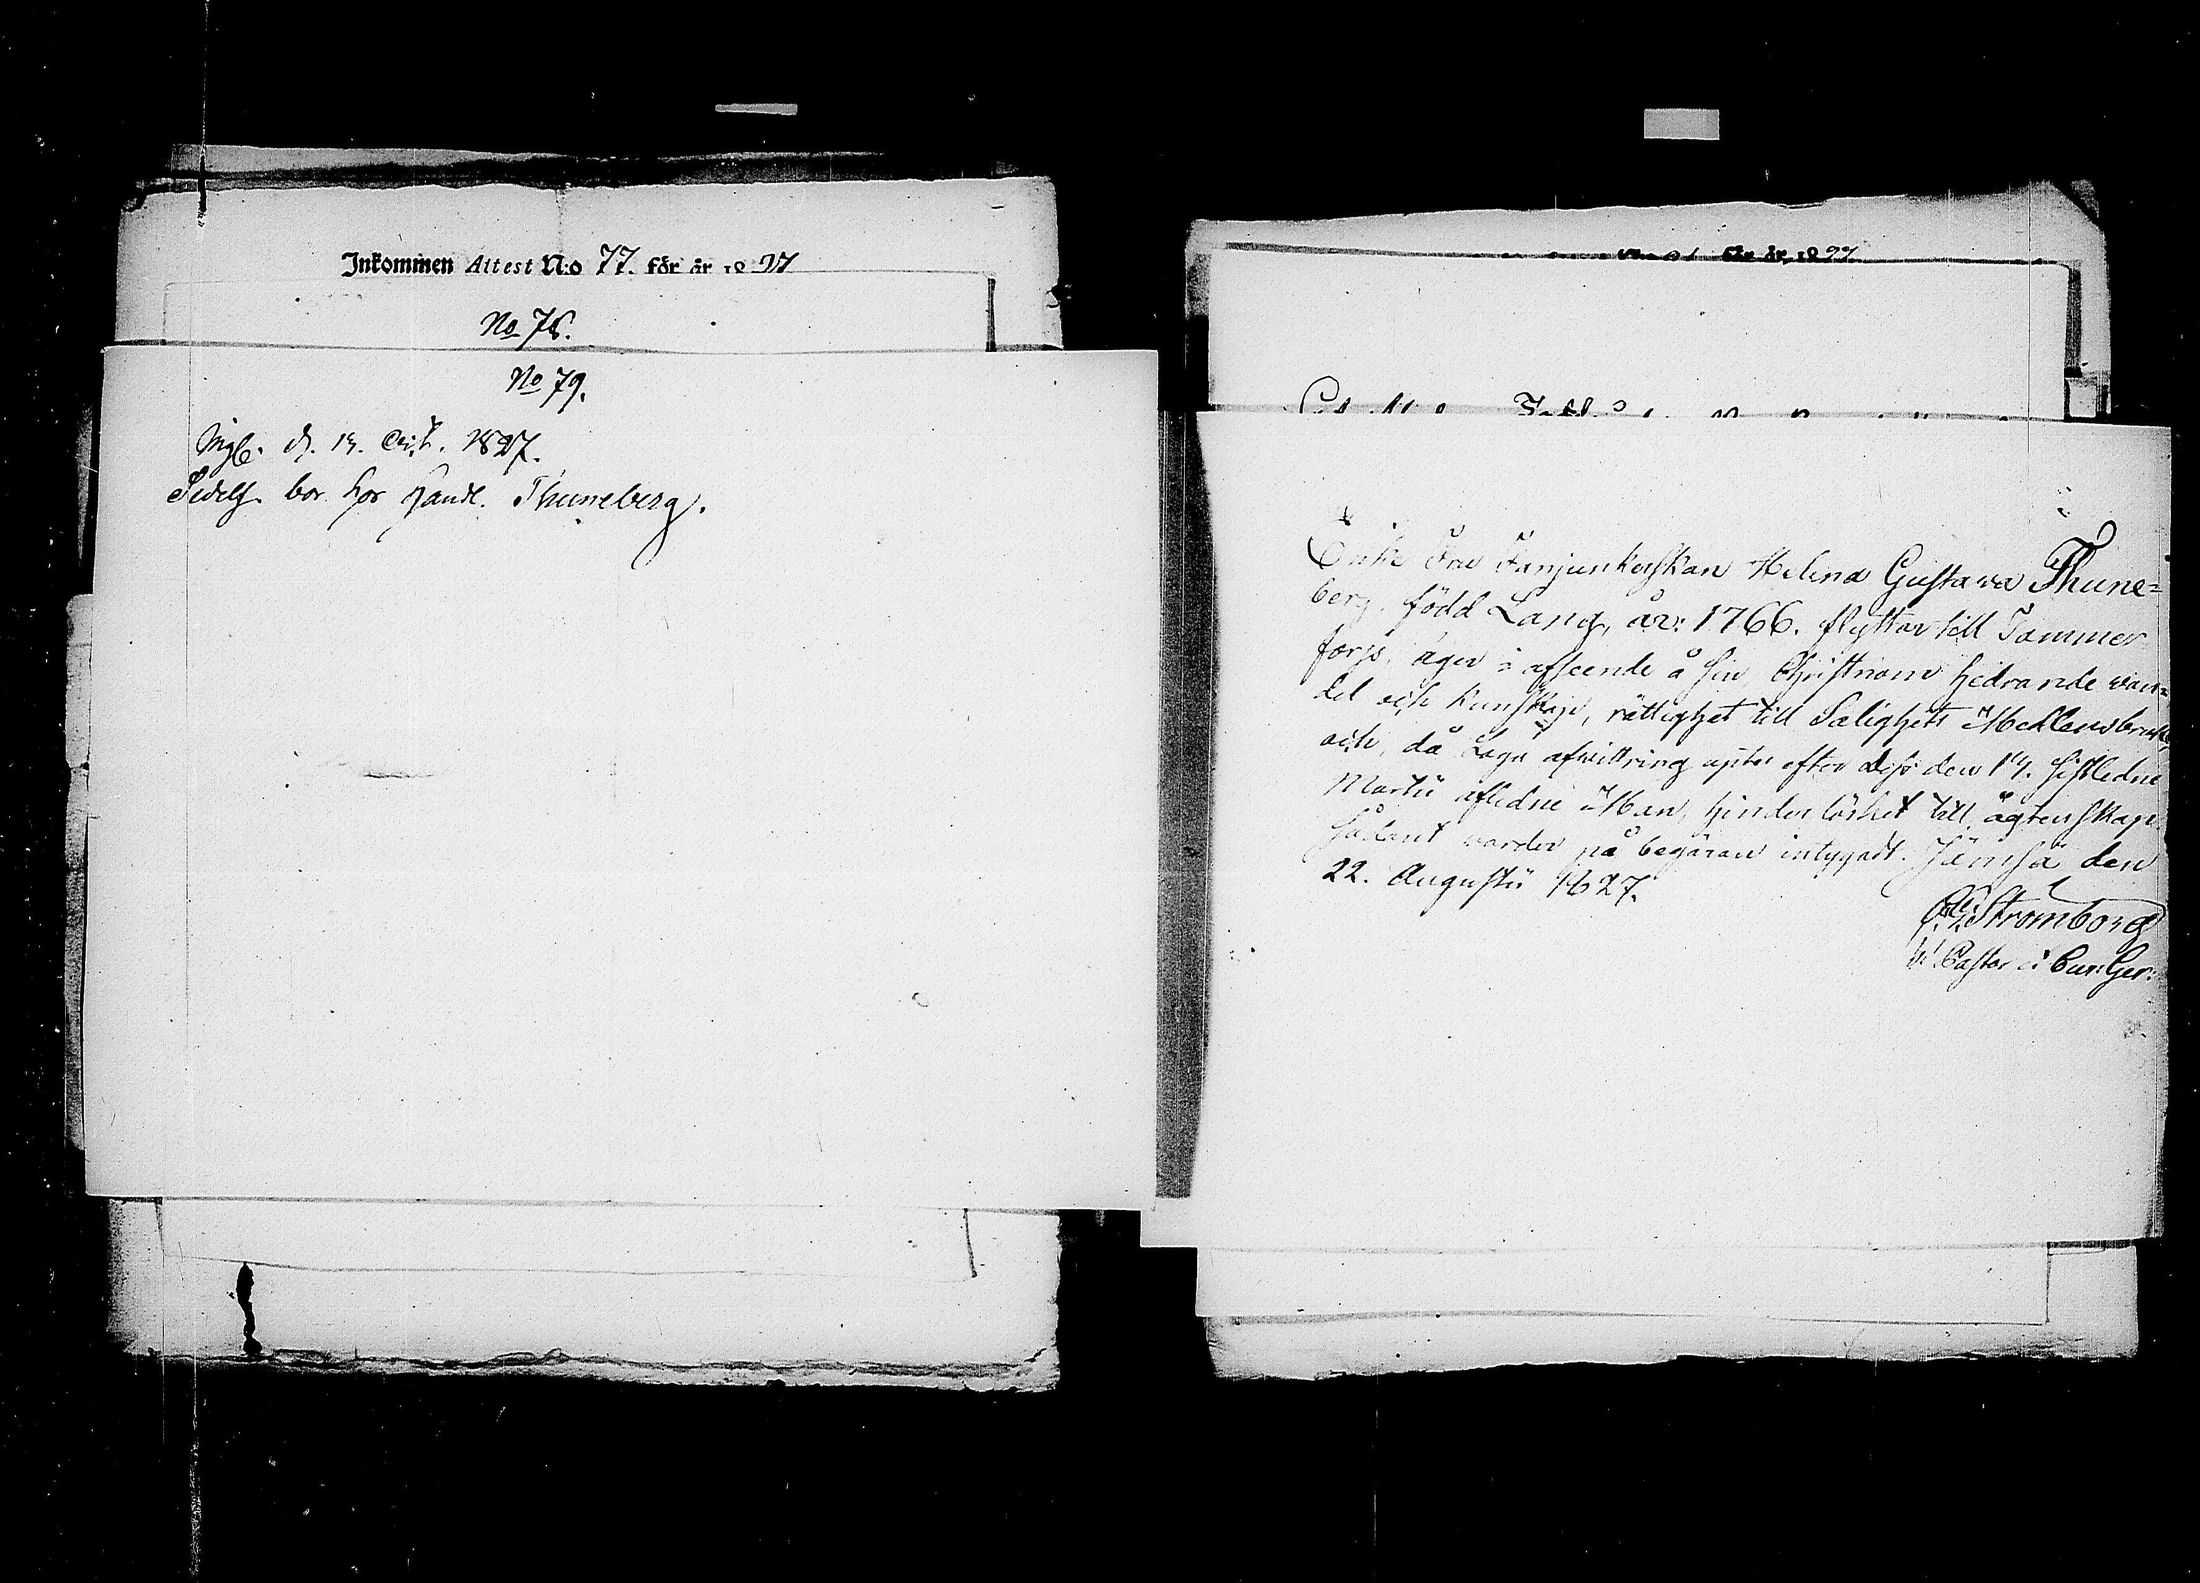 Inkommen Attest N:o 77. för år 1827
No 78.
No 79.
d. 13. Oct. 1827.
bor hos Handl. Thuneberg.
för år 1827
Enke Fru Fanjunkerskan Helena Gustava Thune=
berg, född Lang, år: 1766. flyttar till Tammer
fors, äger i afseende å sin Christnom hedrande wan=
del och kunskap, rättighet till Salighets Medlens bruk,
och, då Laga afwittring efter dess den 14. sistledne
Martii aflidne Man, hinderlöshet till ägtenskap.
Sådant warder på begäran intygadt. Jämsä den
22. Augusti 1827.
Strömborg
V. Pastor i